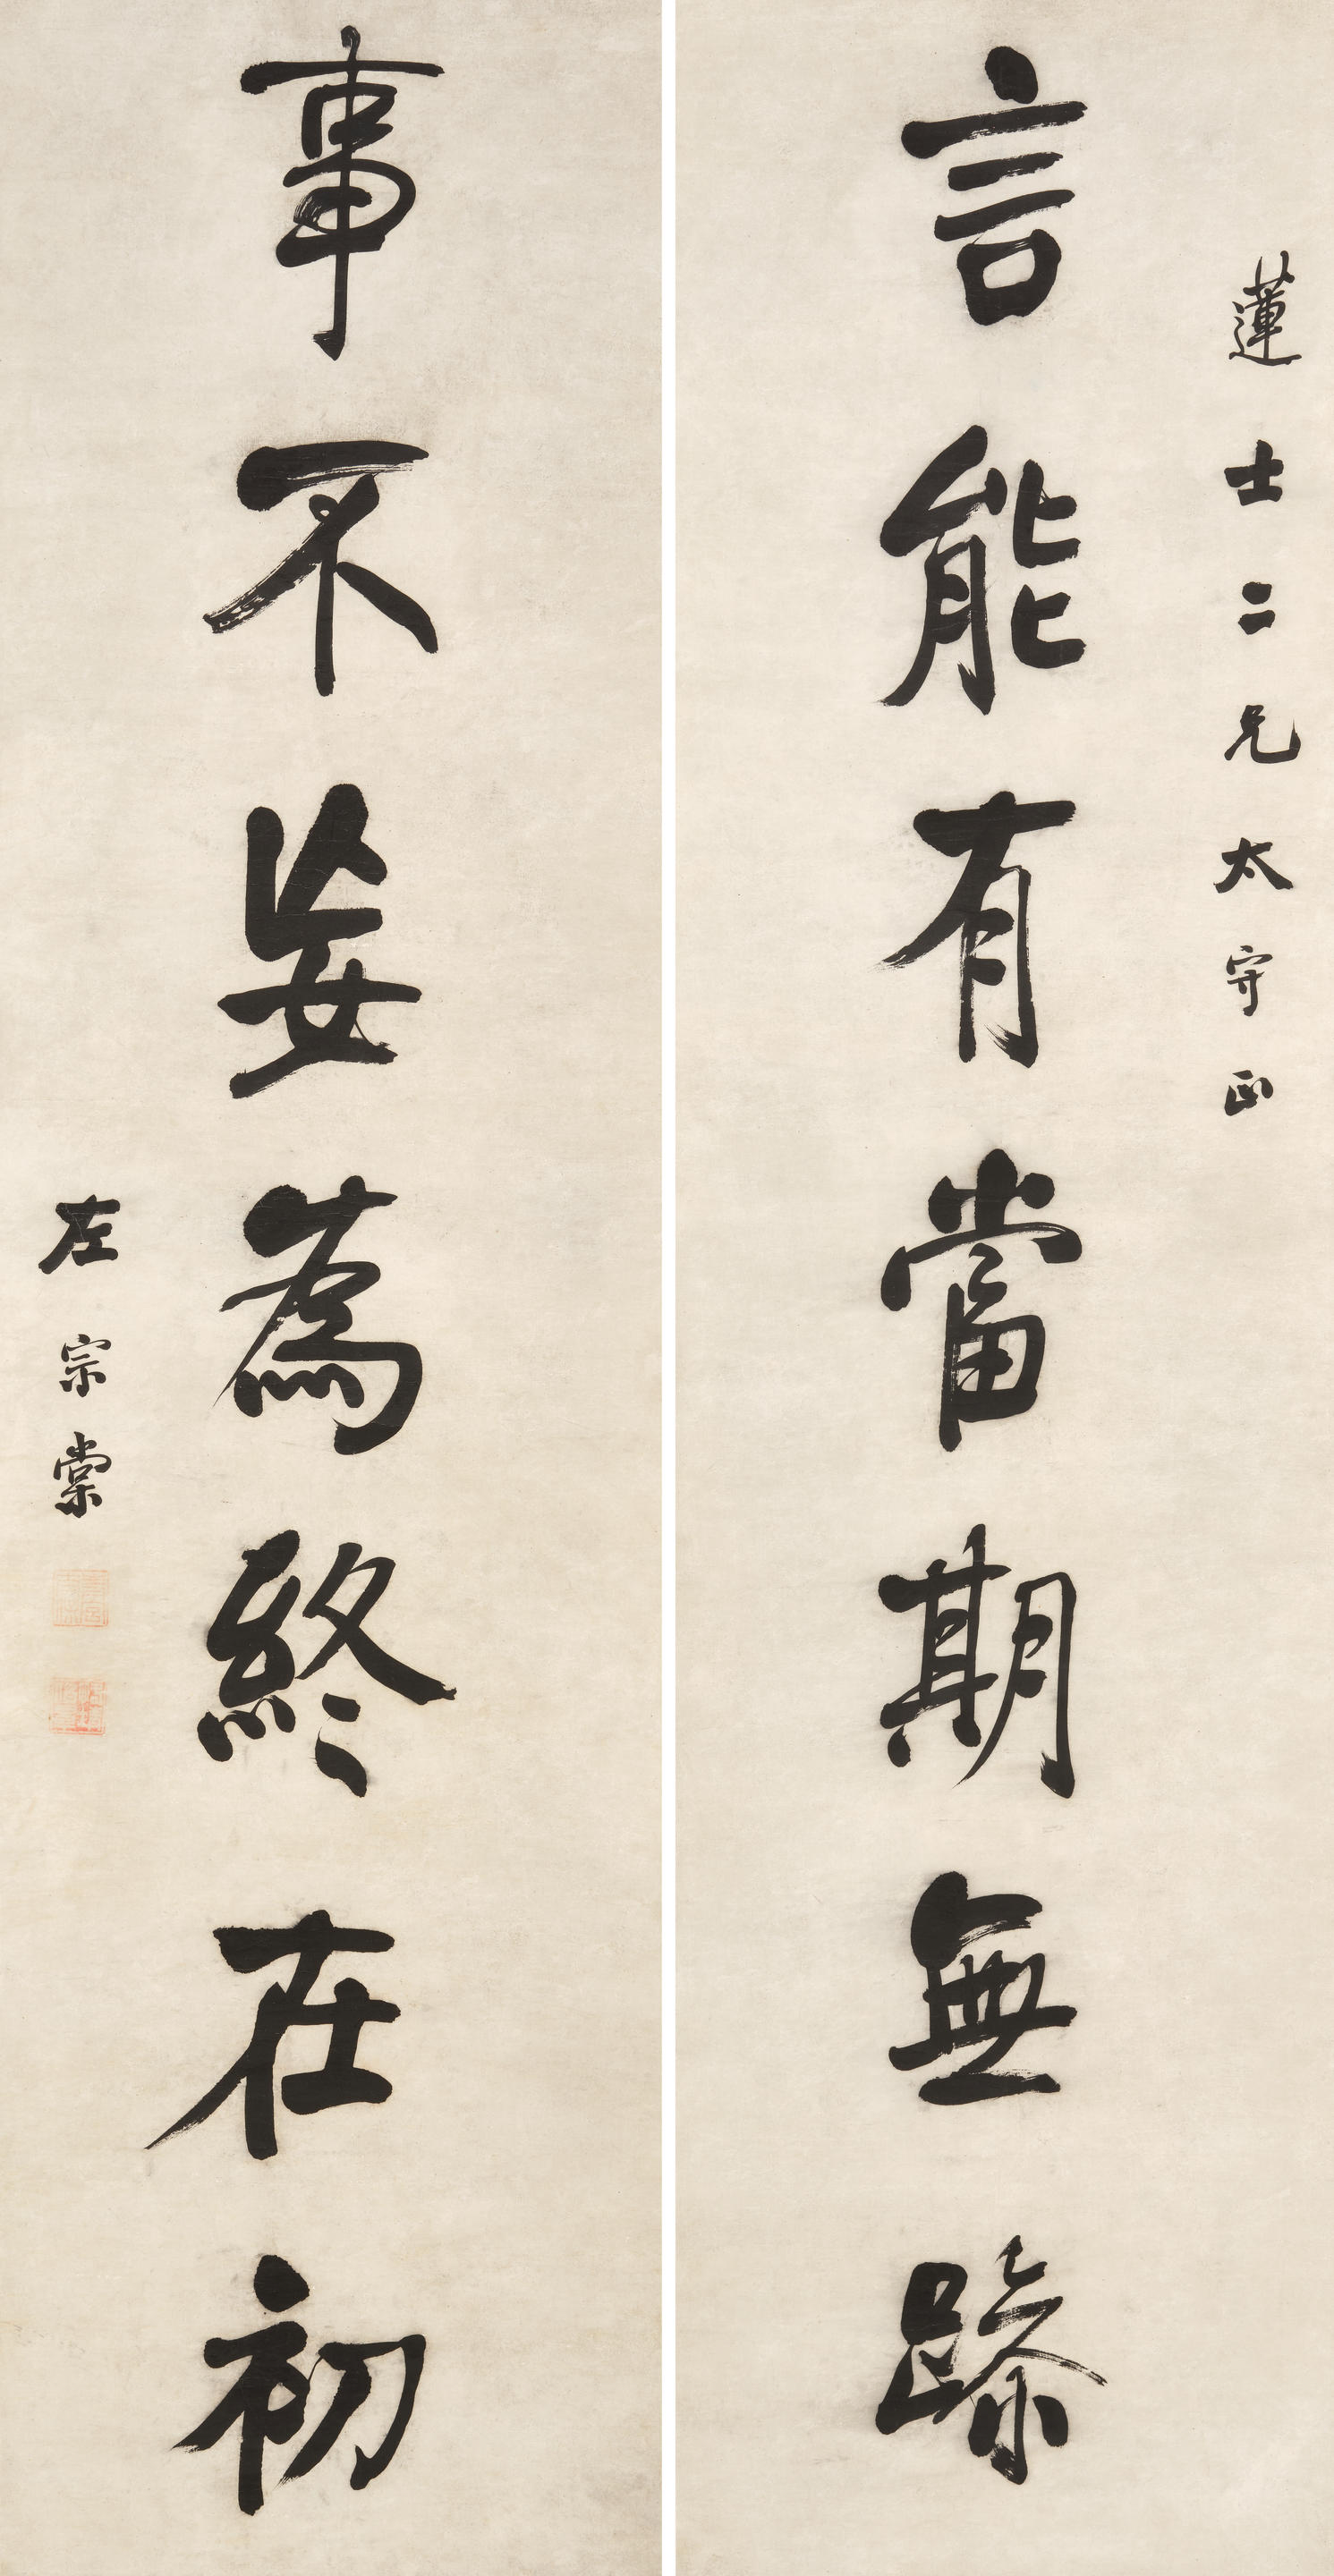 蓮士二兄太守正
言能有當期無踈
事不妄為終在初
左宗棠